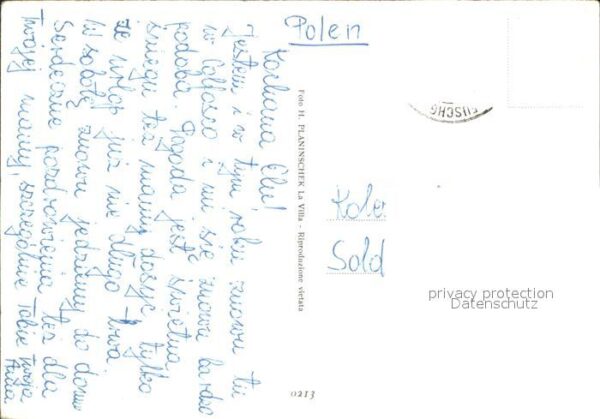 Polen
Kochana Elu!
Jestem i w tym roku znowu tu
w Colfosco i mi się znowu bardzo
podoba. Pogoda jest świetna
śniegu też mamy dosyć tylko
że urlop już nie długo trwa
W sobotę znowu jedziemy do domu
Serdeczne pozdrowienia też dla
Twojej mamy, szczególnie Tobie Twoja
Foto H. PLANINSCHEK La Villa - Riproduzione vietata
Kole
Sold
privacy protection
Datenschutz
0213